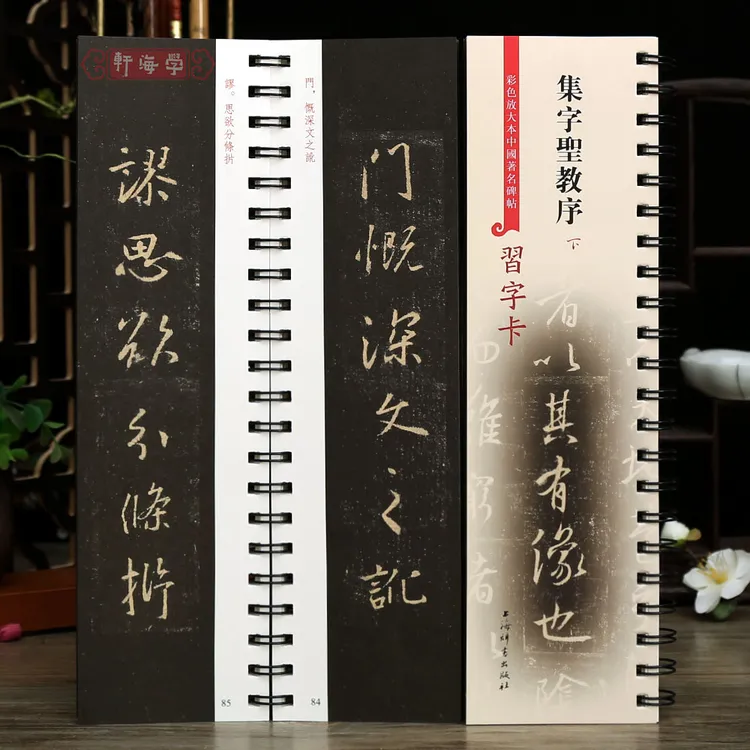 學海軒
門慨深文之訛
門，慨深文之訛
84
謬思欲分條析
謬。思欲分條析
85
彩色放大本中國著名碑帖
集字聖教序
下
習字卡
有以其有像也
上海辭書出版社